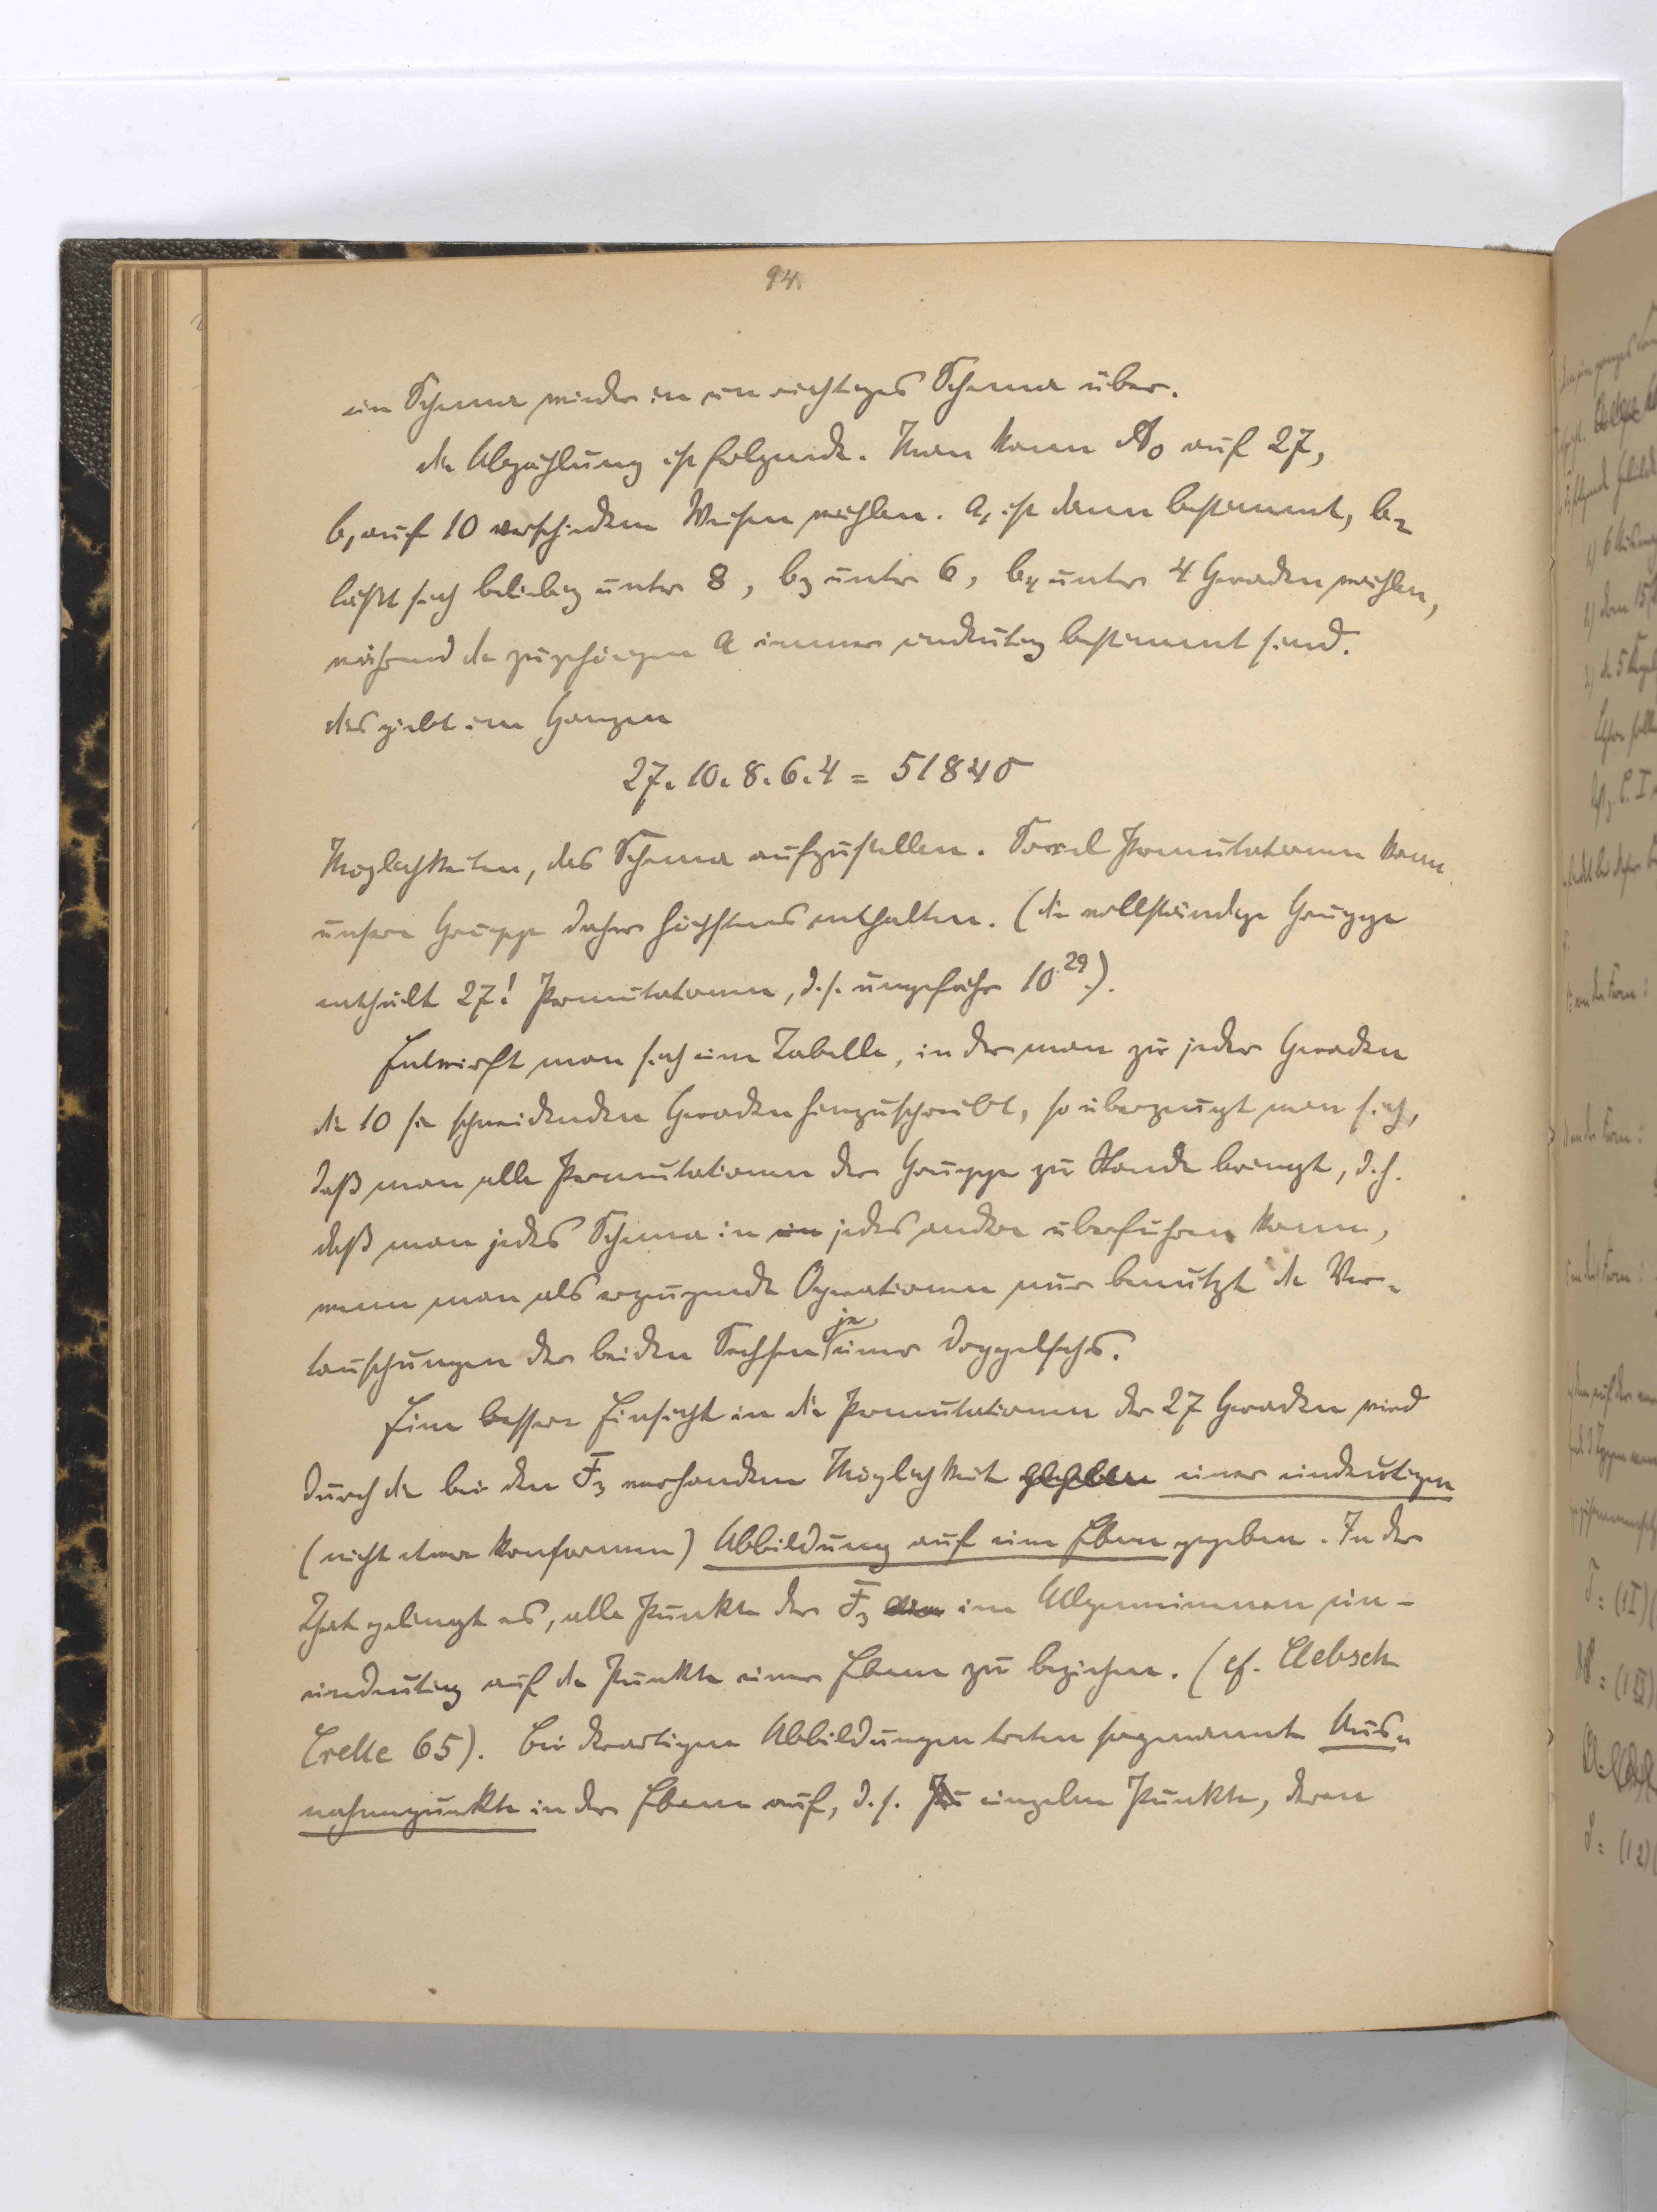 94.
ein Schema wieder in ein richtiges Schema über.
Die Abzählung ist folgende. Man kann A₀ auf 27,
b₁ auf 10 verschiedene Weisen wählen. a₁ ist dann bestimmt, b₂
läßt sich beliebig unter 8, b₃ unter 6, b₄ unter 4 Geraden wählen,
während die zugehörigen a immer eindeutig bestimmt sind.
Dies giebt im Ganzen
27. 10. 8. 6. 4 = 51840
Möglichkeiten, das Schema aufzustellen. Soviel Permutationen kann
unsere Gruppe daher höchstens enthalten. (Die vollständige Gruppe
enthält 27! Permutationen, d. s. ungefähr 10²⁹.).
Entwirft man sich eine Tabelle, in der man zu jeder Geraden
die 10 sie schneidenden Geraden hinzuschreibt, so überzeugt man sich,
daß man alle Permutationen der Gruppe zu Stande bringt, d. h.
daß man jedes Schema in ein jedes andere überführen kann,
wenn man als erzeugende Operationen nur benutzt die Ver-
tauschungen der beiden Sechsen je einer Doppelsechs.
Eine bessere Einsicht in die Permutationen der 27 Geraden wird
durch die bei den F₃ vorhandene Möglichkeit gegeben einer eindeutigen
(nicht etwa konformen) Abbildung auf eine Ebene gegeben. In der
That gelingt es, alle Punkte der F₃ im Allgemeinen ein-
eindeutig auf die Punkte einer Ebene zu beziehen. (cf. Clebsch
Crelle 65). Bei derartigen Abbildungen treten sogenannte Aus-
nahmepunkte in der Ebene auf, d. s. Pu einzelne Punkte, deren